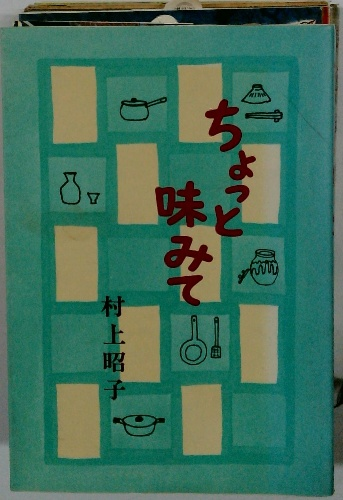 ちょっと
味みて
村上昭子